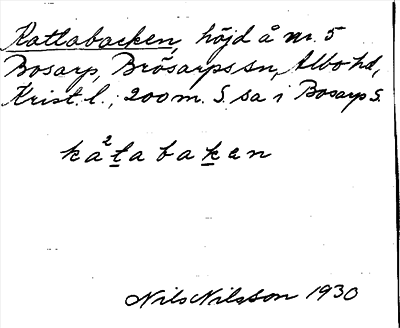 Kattabacken, höjd å nr. 5
Bosarp, Brösarps sn, Albo hd,
Krist. l.; 200 m. S. sa i Bosarp S.
ka²tabakan
Nils Nilsson 1930